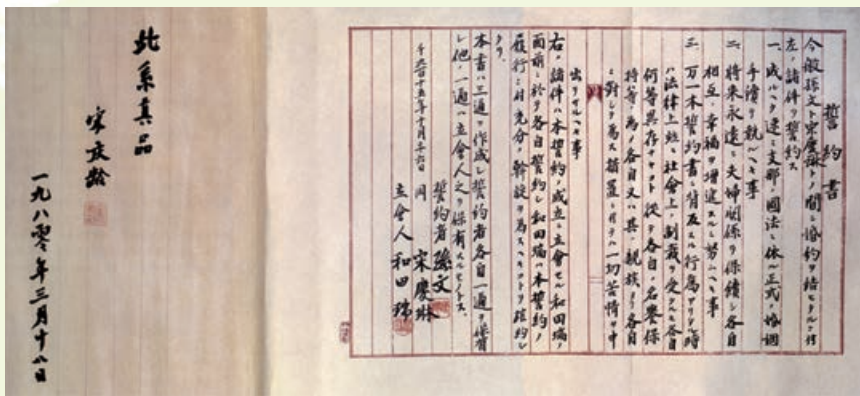 誓約書
今般孫文ト宋慶琳トノ間ニ婚約ヲ結ヒタルニ付
左ノ諸件ヲ誓約ス
一、成ルヘク速ニ支那ノ國法ニ依ル正式ノ婚姻
手續ヲ執ルヘキ事
二、將来永遠ニ夫婦関係ヲ保續シ各自
相互ノ幸福ヲ增進スルニ努ムヘキ事
三、万一本誓約書ニ背反スル行為アリタル時
ハ法律上並ニ社會上ノ制裁ヲ受クルモ各自
何等異存ナキコト從テ各自ノ名誉保
持等ノ為メ各自又ハ其ノ親族ヨリ各自
ニ對シテ為ス措置ニ付テハ一切苦情ヲ申
出テサルヘキ事
右ノ諸件ハ本誓約ノ成立ニ立會セル和田瑞ノ
面前ニ於テ各自誓約シ和田瑞ハ本誓約ノ
履行ニ付充分ノ斡旋ヲ為スヘキコトヲ確約シ
タリ。
本書ハ三通ヲ作成シ誓約者各自一通ヲ保有
シ他ノ一通ハ立會人之ヲ保有スルモノトス。
誓約者 孫文
千九百十五年十月二十六日 同 宋慶琳
立會人 和田瑞
此系真品
宋慶齡
一九八零年三月十八日